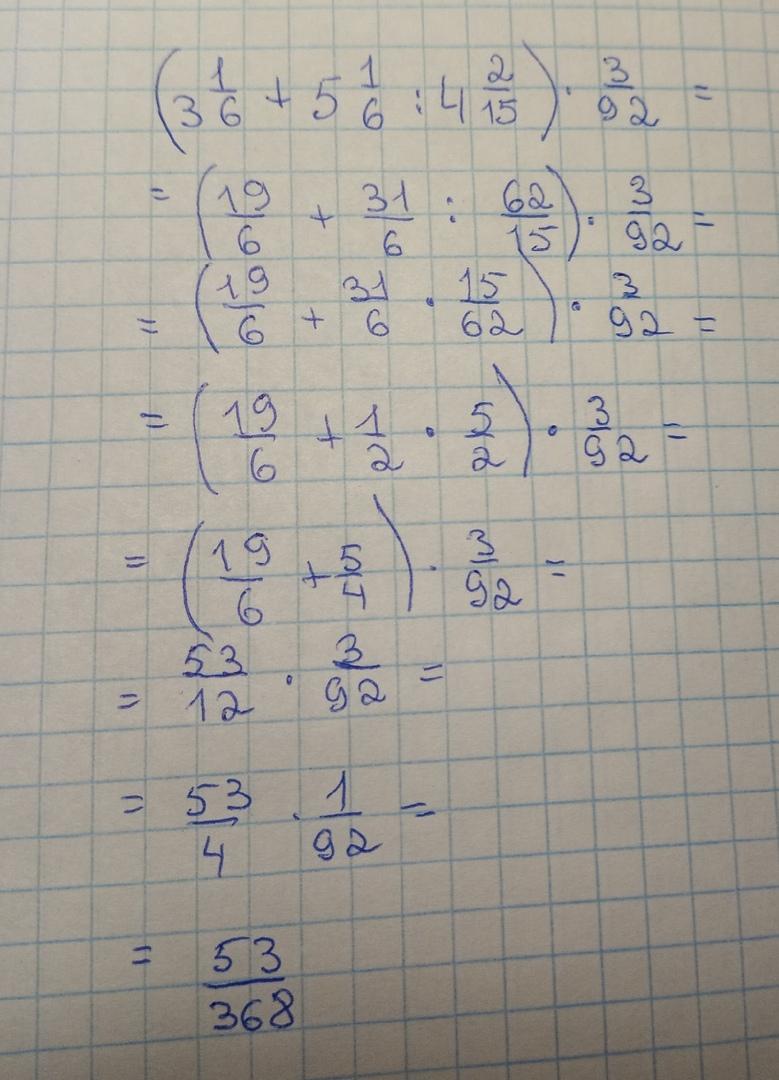 (3 1/6 + 5 1/6 : 4 2/15) · 3/92 =
= (19/6 + 31/6 : 62/15) · 3/92 =
= (19/6 + 31/6 · 15/62) · 3/92 =
= (19/6 + 1/2 · 5/2) · 3/92 =
= (19/6 + 5/4) · 3/92 =
= 53/12 · 3/92 =
= 53/4 · 1/92 =
= 53/368